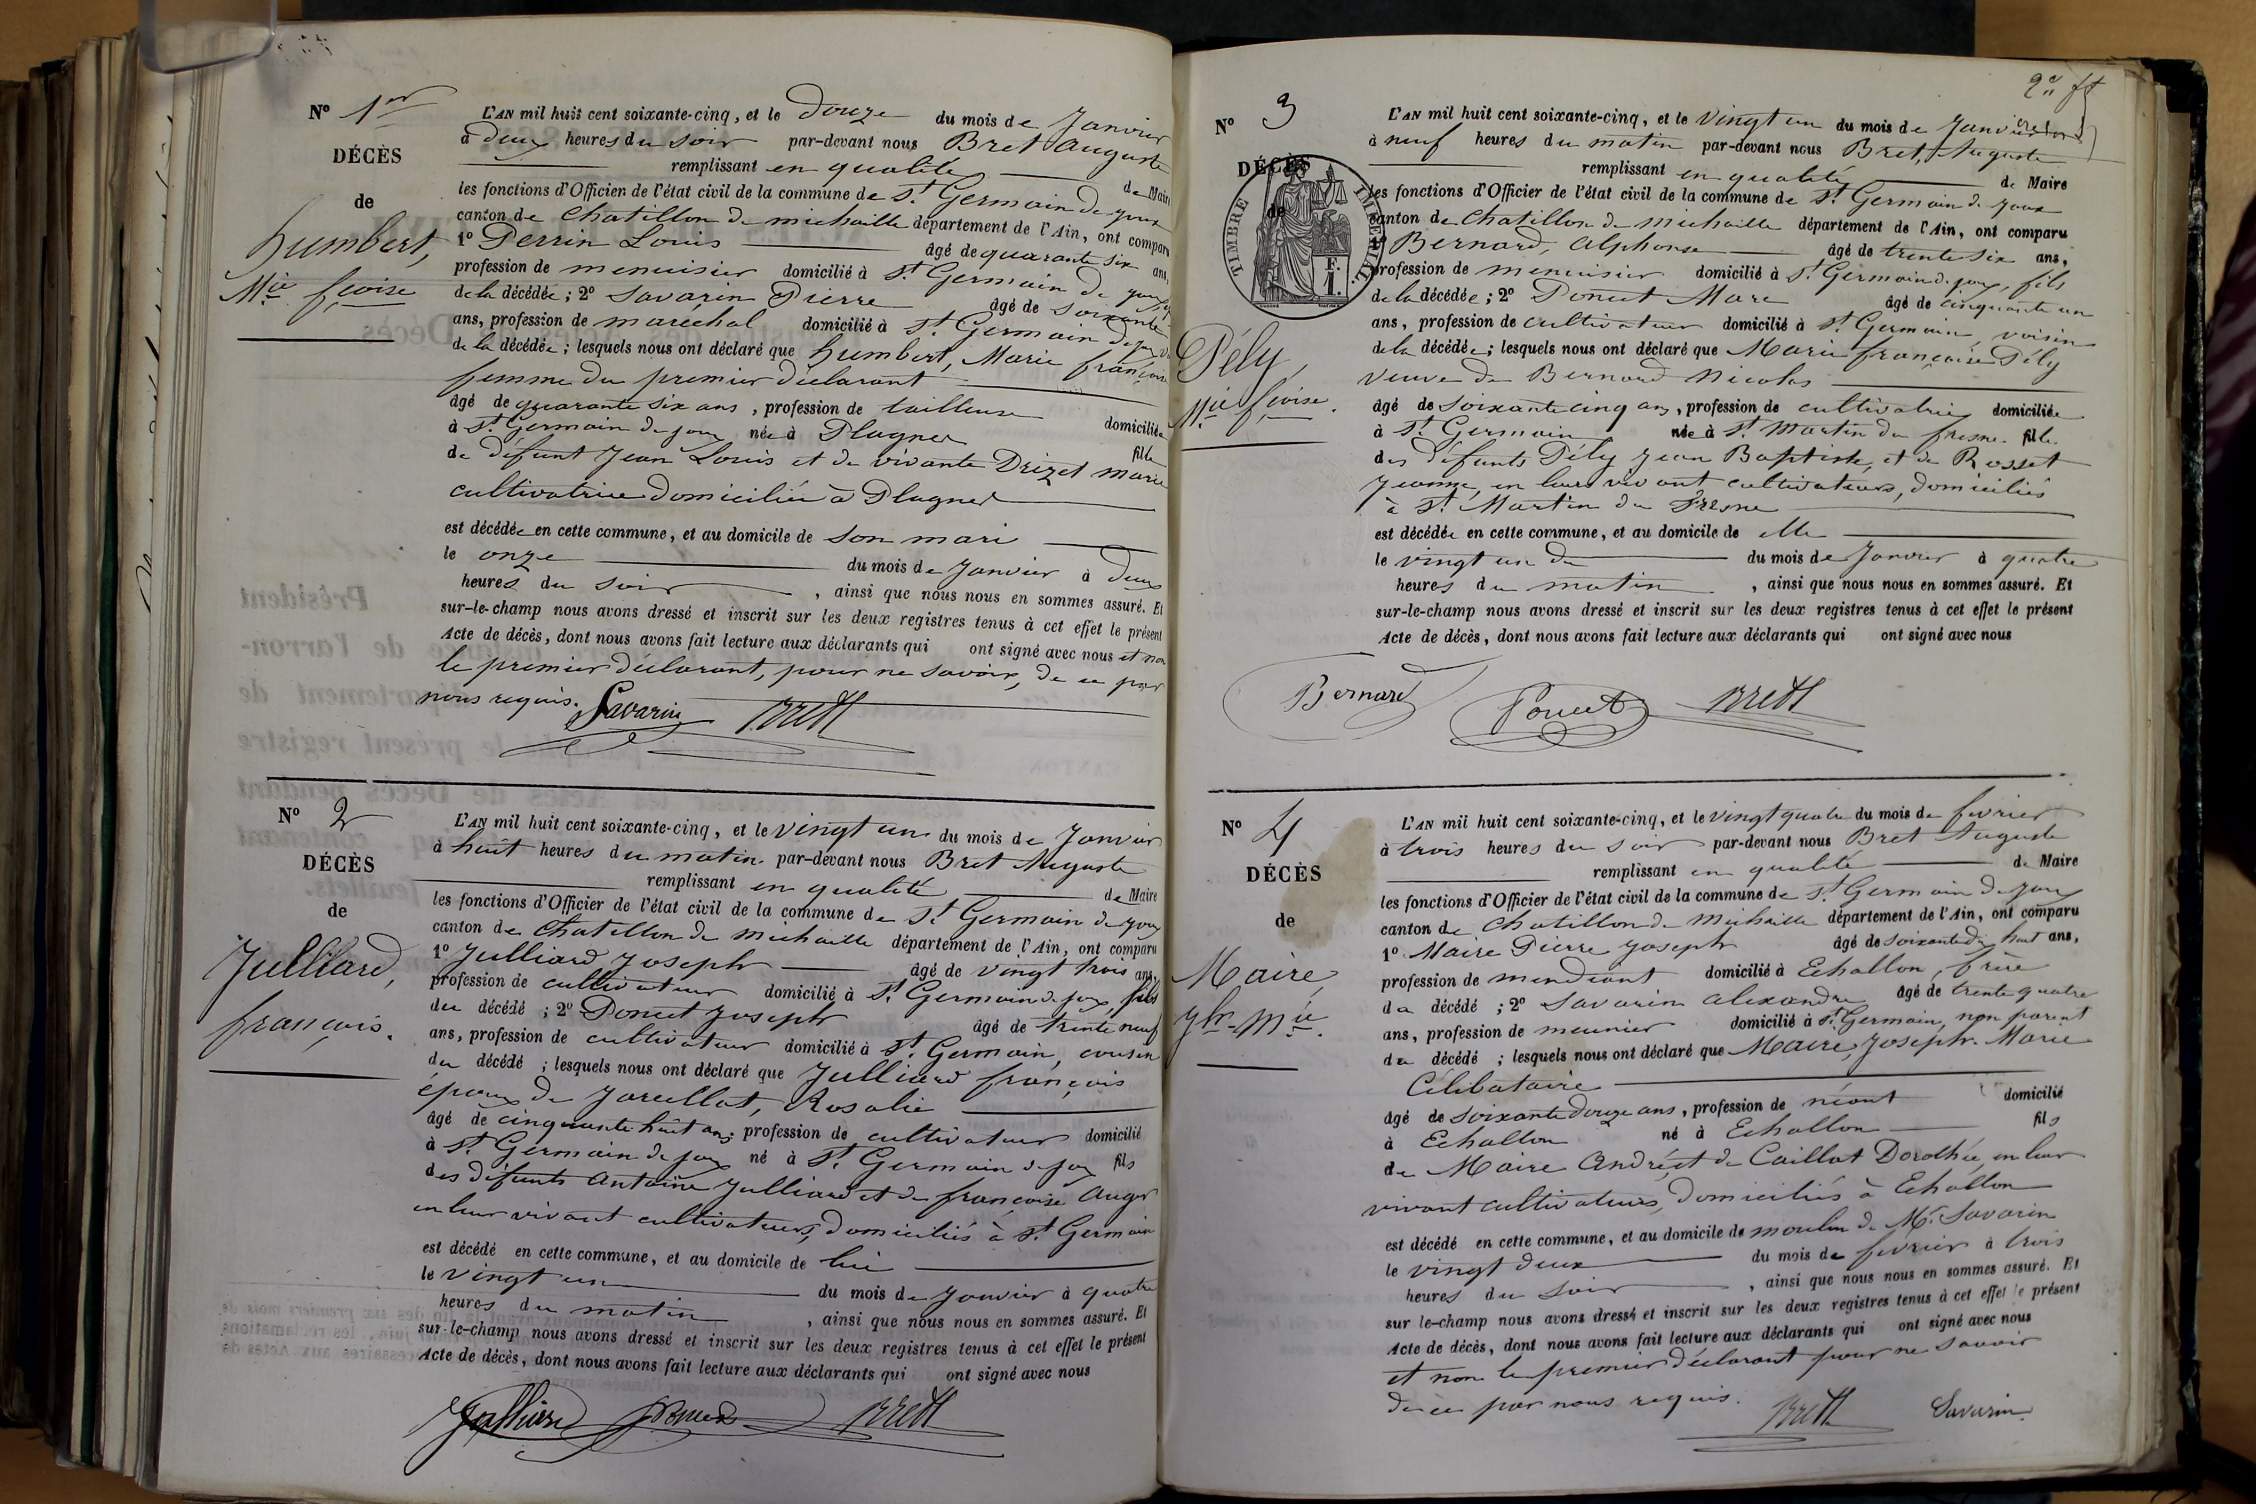 N° 1er
DÉCÈS
de
humbert,
Mie fçoise
L'AN mil huit cent soixante-cinq, et le douze du mois de Janvier
à deux heures du soir par-devant nous Bret Auguste
remplissant en qualité de Maire
les fonctions d'Officier de l'état civil de la commune de St Germain de joux
canton de Chatillon de michaille département de l'Ain, ont comparu
1° Perrin Louis âgé de quarante six ans,
profession de menuisier domicilié à St Germain de joux
de la décédée ; 2° Savarin Pierre âgé de soixante
ans, profession de maréchal domicilié à St Germain de joux
de la décédée ; lesquels nous ont déclaré que humbert, Marie françoise
femme du premier déclarant
âgé de quarante six ans, profession de tailleuse domiciliée
à St Germain de joux née à Plagnes fille
de défunt Jean Louis et de vivante Drizet marie
cultivatrice domiciliée à Plagnes
est décédée en cette commune, et au domicile de son mari
le onze du mois de Janvier à deux
heures du soir, ainsi que nous nous en sommes assuré. Et
sur-le-champ nous avons dressé et inscrit sur les deux registres tenus à cet effet le présent
Acte de décès, dont nous avons fait lecture aux déclarants qui ont signé avec nous et non
le premier déclarant, pour ne savoir, de ce par
nous requis. Savarin Brett
N° 2
DÉCÈS
de
Julliard,
françois.
L'AN mil huit cent soixante-cinq, et le vingt un du mois de Janvier
à huit heures du matin par-devant nous Bret Auguste
remplissant en qualité de Maire
les fonctions d'Officier de l'état civil de la commune de St Germain de joux
canton de Chatillon de michaille département de l'Ain, ont comparu
1° Julliard Joseph âgé de vingt trois ans,
profession de cultivateur domicilié à St Germain de joux, fils
du décédé ; 2° Poncet Joseph âgé de trente neuf
ans, profession de cultivateur domicilié à St Germain, cousin
du décédé ; lesquels nous ont déclaré que Julliard françois
époux de Jarcellat, Rosalie
âgé de cinquante huit ans, profession de cultivateur domicilié
à St Germain de joux né à St Germain de joux fils
des défunts Antoine Julliard et de françoise Auger
en leur vivant cultivateurs, domiciliés à St Germain
est décédé en cette commune, et au domicile de lui
le vingt un du mois de Janvier à quatre
heures du matin, ainsi que nous nous en sommes assuré. Et
sur-le-champ nous avons dressé et inscrit sur les deux registres tenus à cet effet le présent
Acte de décès, dont nous avons fait lecture aux déclarants qui ont signé avec nous
Julliard Poncet Brett
2e ft
N° 3
DÉCÈS
de
TIMBRE IMPÉRIAL
Pély,
Mie fçoise.
L'AN mil huit cent soixante-cinq, et le vingt un du mois de Janvier
à neuf heures du matin par-devant nous Bret, Auguste
remplissant en qualité de Maire
les fonctions d'Officier de l'état civil de la commune de St Germain de joux
canton de Chatillon de michaille département de l'Ain, ont comparu
1° Bernard, Alphonse âgé de trente six ans,
profession de menuisier domicilié à St Germain d. joux, fils
de la décédée ; 2° Poncet Marc âgé de cinquante un
ans, profession de cultivateur domicilié à St Germain, voisin
de la décédée ; lesquels nous ont déclaré que Marie françoise Pély
veuve de Bernard Nicolas
âgé de soixante cinq ans, profession de cultivatrice domiciliée
à St Germain née à St Martin du fresne fille
des défunts Pély Jean Baptiste, et de Rosset
Jeanne, en leur vivant cultivateurs, domiciliés
à St Martin du Fresne
est décédée en cette commune, et au domicile de elle
le vingt un du du mois de Janvier à quatre
heures du matin, ainsi que nous nous en sommes assuré. Et
sur-le-champ nous avons dressé et inscrit sur les deux registres tenus à cet effet le présent
Acte de décès, dont nous avons fait lecture aux déclarants qui ont signé avec nous
Bernard Poncet Brett
N° 4
DÉCÈS
de
Maire,
Jph Mie.
L'AN mil huit cent soixante-cinq, et le vingt quatre du mois de fevrier
à trois heures du soir par-devant nous Bret Auguste
remplissant en qualité de Maire
les fonctions d'Officier de l'état civil de la commune de St Germain de joux
canton de Chatillon de Michaille département de l'Ain, ont comparu
1° Maire Pierre Joseph âgé de soixante dix huit ans,
profession de mendiant domicilié à Echallon, frère
du décédé ; 2° Savarin Alexandre âgé de trente quatre
ans, profession de meunier domicilié à St Germain, non parent
du décédé ; lesquels nous ont déclaré que Maire, Joseph Marie
Célibataire
âgé de soixante douze ans, profession de néant domicilié
à Echallon né à Echallon fils
de Maire André, et de Caillat Dorothée, en leur
vivant cultivateurs, domiciliés à Echallon
est décédé en cette commune, et au domicile de moulin de Mr Savarin
le vingt deux du mois de fevrier à trois
heures du soir, ainsi que nous nous en sommes assuré. Et
sur le-champ nous avons dressé et inscrit sur les deux registres tenus à cet effet le présent
Acte de décès, dont nous avons fait lecture aux déclarants qui ont signé avec nous
et non le premier déclarant pour ne savoir
de ce par nous requis. Brett Savarin